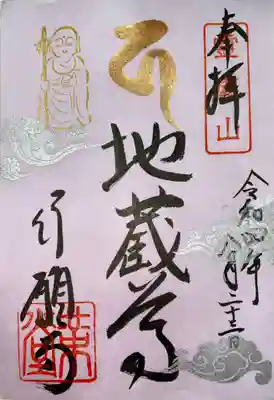 奉拝
令和四年
八月二十三日
地蔵尊
行願寺